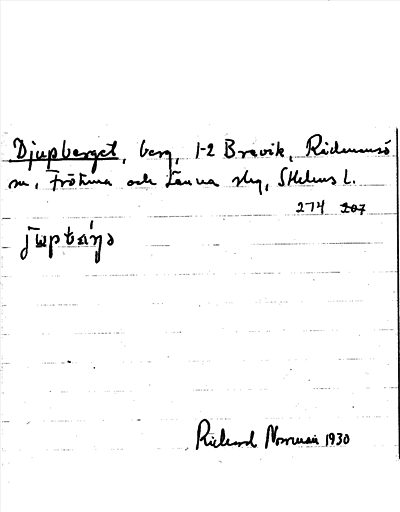 Djupberget, berg, 1-2 Bravik, Rådmansö
sn, Frötuna och Länna slg, Sthlms l.
274 207
Rickard Norrman 1930